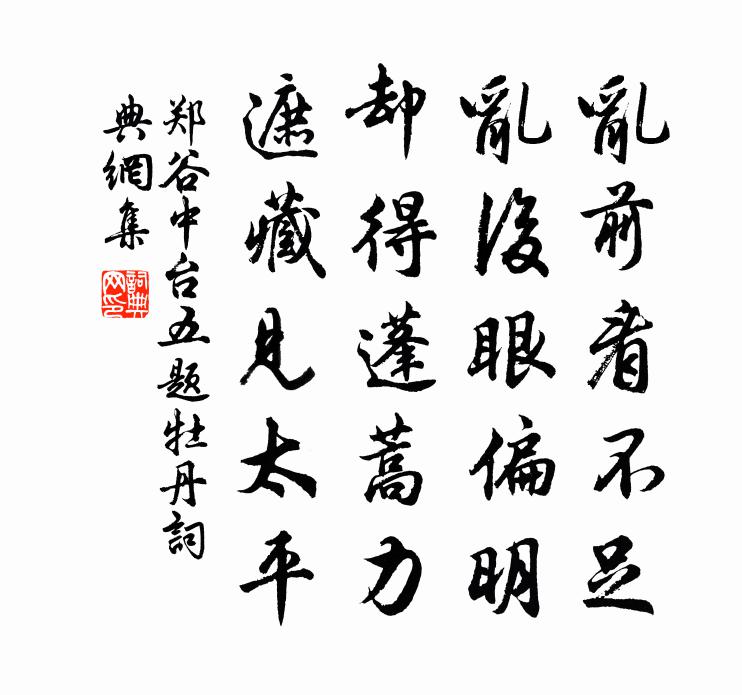 亂前看不足
亂後眼偏明
却得蓬蒿力
遮藏見太平
郑谷中台五题牡丹詞
典網集
詞典
网印